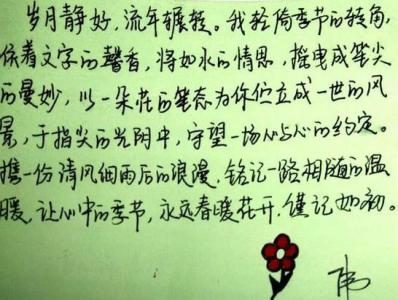 岁月静好,流年辗转。我轻倚季节的转角,
依着文字的馨香,将如水的情思,摇曳成笔尖
的曼妙,以一朵花的笔态为你伫立成一世的风
景,于指尖的光阴中,守望一场心与心的约定。
携一份清风细雨后的浪漫,铭记一路相随的温
暖,让心中的季节,永远春暖花开,谨记如初。